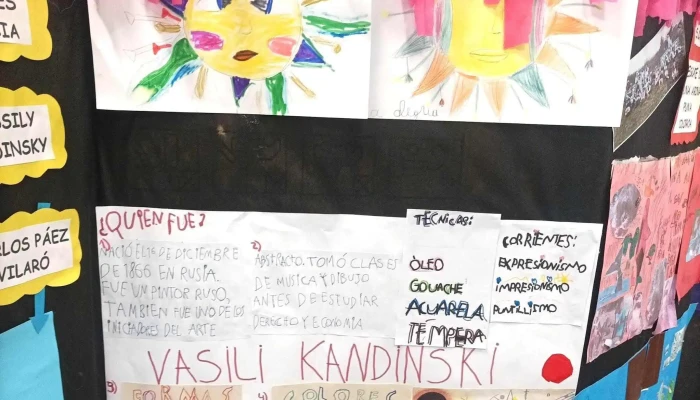 SSILY
DINSKY
LOS PÁEZ
VILARÓ
a alegria
¿QUIEN FUE?
1)
NACIÓ EL 16 DE DICIEMBRE
DE 1866 EN RUSIA.
FUE UN PINTOR RUSO,
TAMBIÉN FUE UNO DE LOS
INICIADORES DEL ARTE
2)
ABSTRACTO. TOMÓ CLASES
DE MUSICA Y DIBUJO
ANTES DE ESTUDIAR
DERECHO Y ECONOMIA
TÉCNICAS:
ÓLEO
GOUACHE
ACUARELA
TÉMPERA
CORRIENTES:
EXPRESIONISMO
IMPRESIONISMO
PUNTILLISMO
VASILI KANDINSKI
3)
FORMAS
4)
COLORES